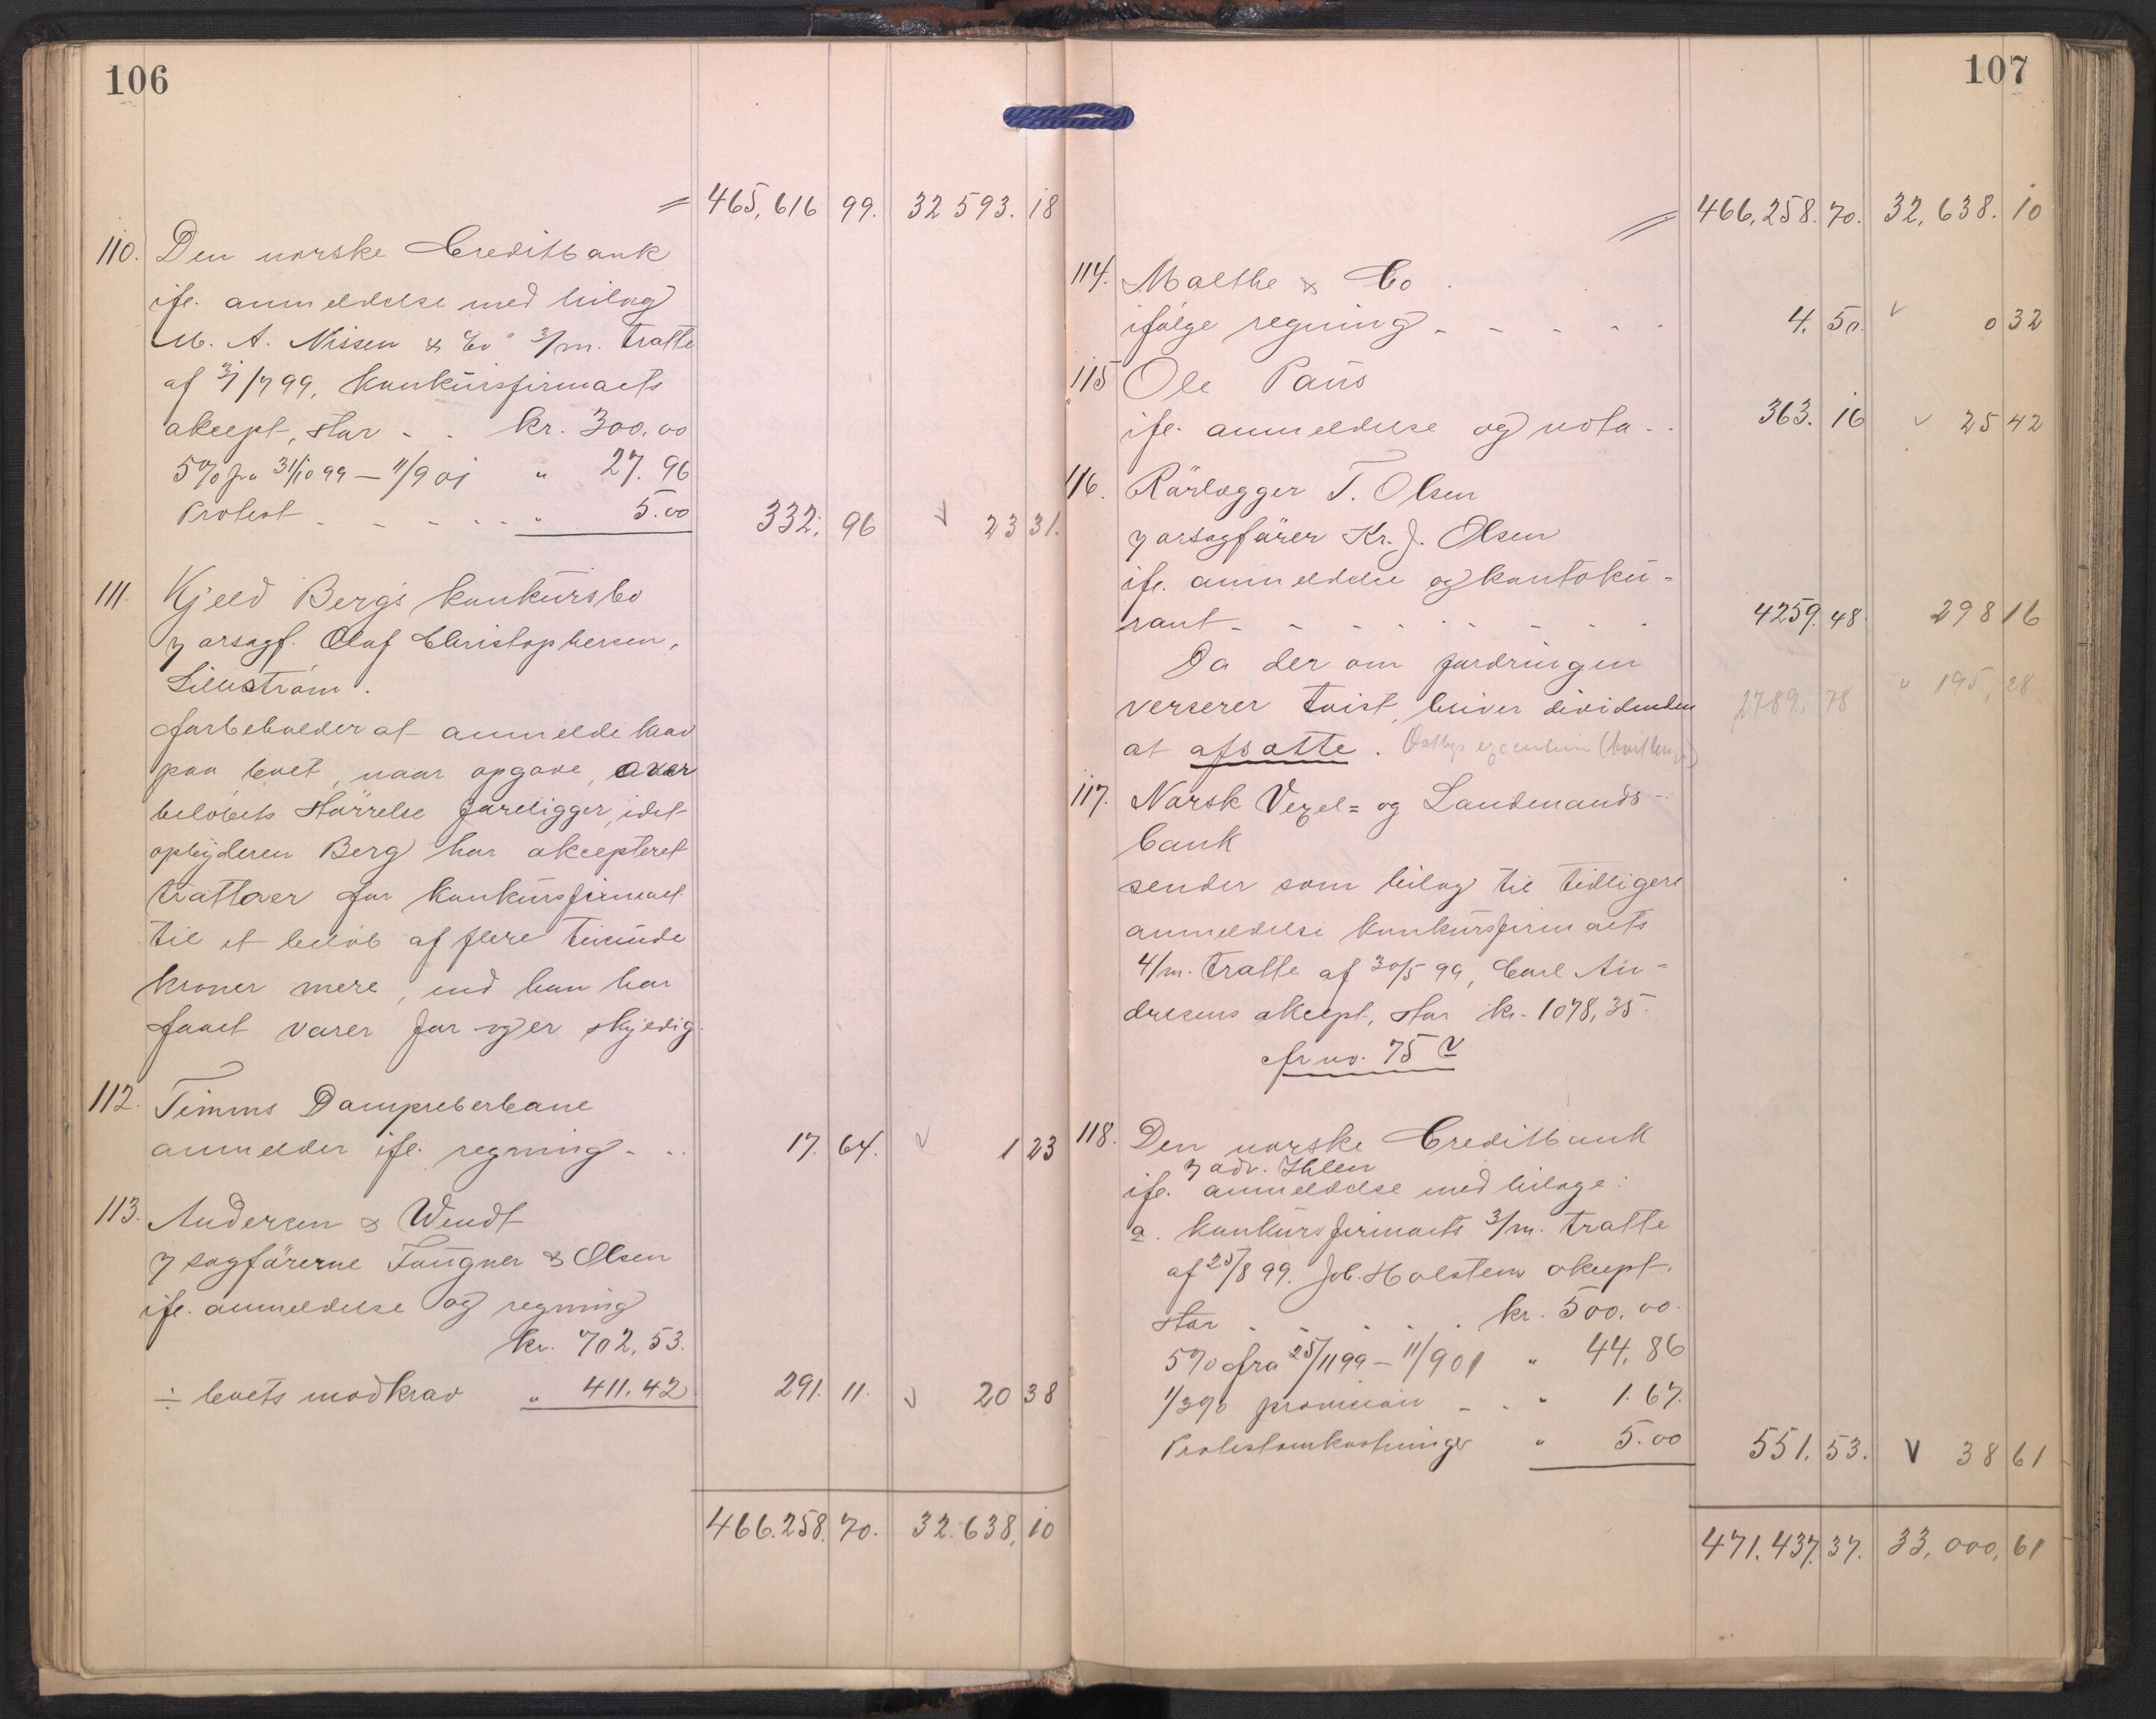 106
= 465,616 99. 32 593. 18
110. Den norske Creditbank
ifl. anmeldelse med bilag
M. A. Nissen & Co 3/m. tratte
af 31/7 99, konkursfirmaets
akcept, stor - . kr. 300.00
5% fra 31/10 99 — 11/9 01 " 27.96
Protest - - - - - - " 5.00 332. 96 v 23 31.
111. Kjeld Bergs konkursbo
v/ orsagf. Oluf Christophersen,
Lillestrøm.
forbeholder at anmelde krav
paa boet, naar opgave over
beløbets størrelse foreligger, idet
opbyderen Berg har akcepteret
tratter for konkursfirmaet
til et beløb af flere tusinde
kroner mere, end han har
faaet varer for og er skyldig.
112. Timms Dampreberbane
anmelder ifl. regning - .. 17. 64. v 1 23
113. Andersen & Wendt
v/ sagførerne Fougner & Olsen
ifl. anmeldelse og regning
kr. 702,53.
÷ boets modkrav " 411.42 291. 11. v 20 38
466.258. 70. 32.638, 10
107
= 466,258. 70. 32,638. 10
114. Malthe & Co.
ifølge regning - - - - - 4. 50. v 0 32
115 Ole Paus
ifl. anmeldelse og nota - . 363. 16 v 25 42
116. Rørlægger T. Olsen
v/ orsagfører Kr. J. Olsen
ifl. anmeldelse og kontoku-
rant - - - - - - - - 4259. 48. 298 16
Da der om fordringen
verserer tvist, bliver dividenden 2789. 78 v 195, 28
at afsætte.
117. Norsk Vexel= og Landmands-
bank
sender som bilag til tidligere
anmeldelse konkursfirmaets
4/m. tratte af 30/5 99, Carl An-
dresens akcept, stor kr. 1078,35.
cfr no. 75 v
118. Den norske Creditbank
v/ adv. Ihlen
ifl. anmeldelse med bilage:
a. konkursfirmaets 3/m. tratte
af 25/8 99. Joh. Holstens akcept.
stor - - - - . kr. 500.00.
5% fra 25/11 99 — 11/9 01 " 44.86
1/3% provision - . " 1.67.
Protestomkostninger " 5.00 551. 53. v 38 61
471.437. 37. 33,000, 61